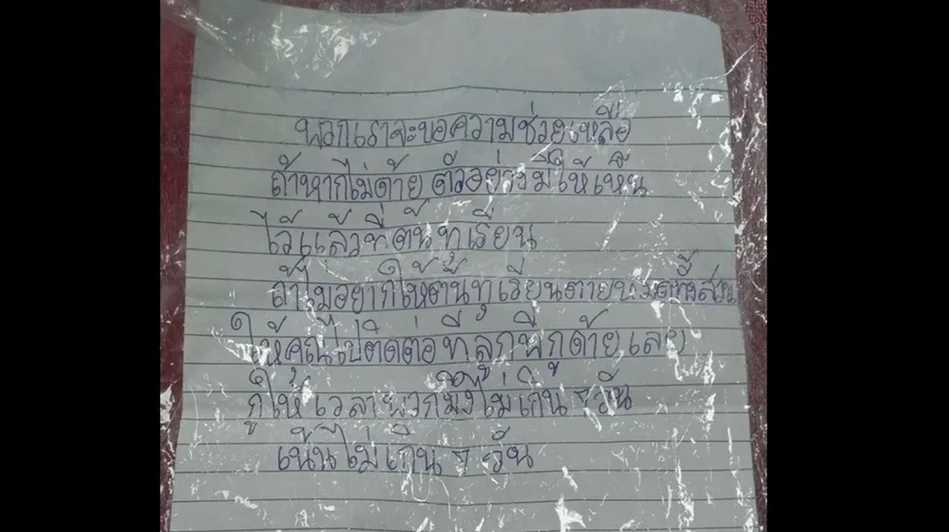 พวกเราจะขอความช่วยเหลือ
ถ้าหากไม่ด้าย ตัวอย่างมีให้เห็น
ไว้แล้วที่ต้นทุเรียน
ถ้าไม่อยากให้ต้นทุเรียนตาย
ให้คุณไปติดต่อที่ลูกพี่กูด้ายเลย
กูให้เวลาพวกมึงไม่เกิน ๆ วัน
เน้นไม่เกิน ๆ วัน